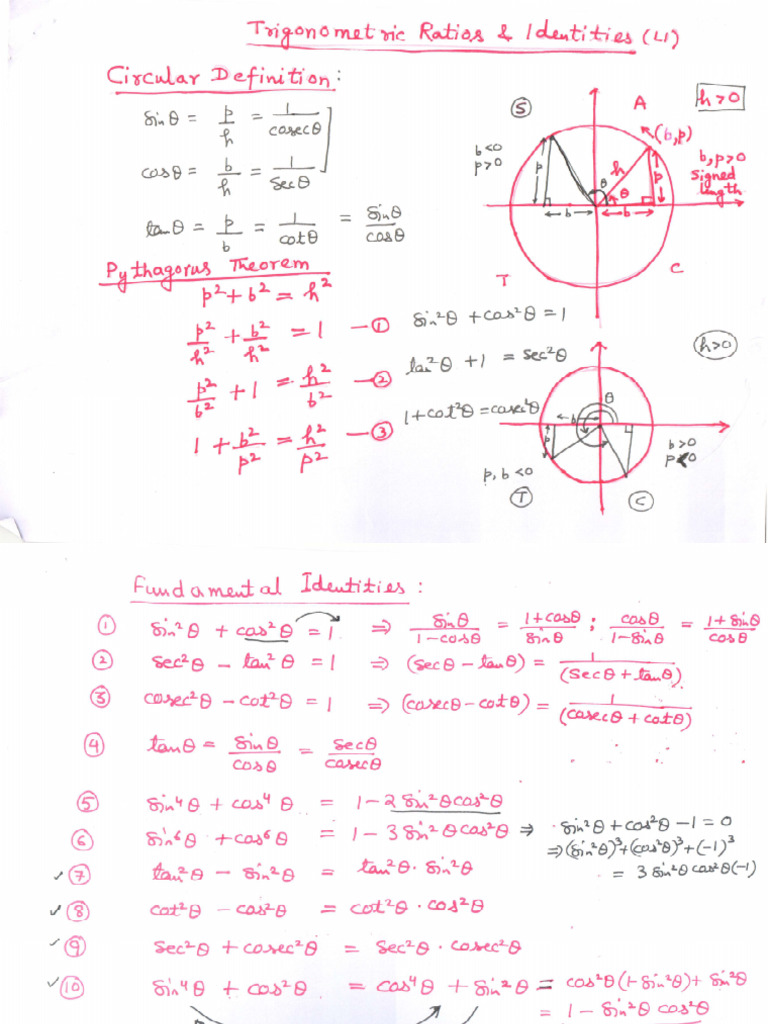 Trigonometric Ratios & Identities (L1)
Circular Definition:
sinθ = p/h = 1/cosecθ
cosθ = b/h = 1/secθ
tanθ = p/b = 1/cotθ = sinθ/cosθ
S
A
h>0
b<0
p>0
(b,p)
b,p>0
Signed
length
p
h
p
θ
θ
b
b
T
C
Pythagorus Theorem
p²+b² = h²
p²/h² + b²/h² = 1 — ① sin²θ + cos²θ = 1
p²/b² + 1 = h²/b² — ② tan²θ + 1 = sec²θ
1 + b²/p² = h²/p² — ③ 1+cot²θ = cosec²θ
h>0
θ
b
p
b>0
p<0
p, b <0
T
C
Fundamental Identities :
① sin²θ + cos²θ = 1 ⇒ sinθ/1-cosθ = 1+cosθ/sinθ ; cosθ/1-sinθ = 1+sinθ/cosθ
② sec²θ - tan²θ = 1 ⇒ (secθ - tanθ) = 1/(secθ + tanθ)
③ cosec²θ - cot²θ = 1 ⇒ (cosecθ - cotθ) = 1/(cosecθ + cotθ)
④ tanθ = sinθ/cosθ = secθ/cosecθ
⑤ sin⁴θ + cos⁴θ = 1-2sin²θcos²θ
⑥ sin⁶θ + cos⁶θ = 1-3sin²θcos²θ ⇒ sin²θ + cos²θ - 1 = 0
⇒ (sin²θ)³+(cos²θ)³+(-1)³
= 3 sin²θ cos²θ (-1)
✓⑦ tan²θ - sin²θ = tan²θ · sin²θ
✓⑧ cot²θ - cos²θ = cot²θ · cos²θ
✓⑨ sec²θ + cosec²θ = sec²θ · cosec²θ
✓⑩ sin⁴θ + cos²θ = cos⁴θ + sin²θ = cos²θ(1-sin²θ) + sin²θ
= 1 - sin²θ cos²θ